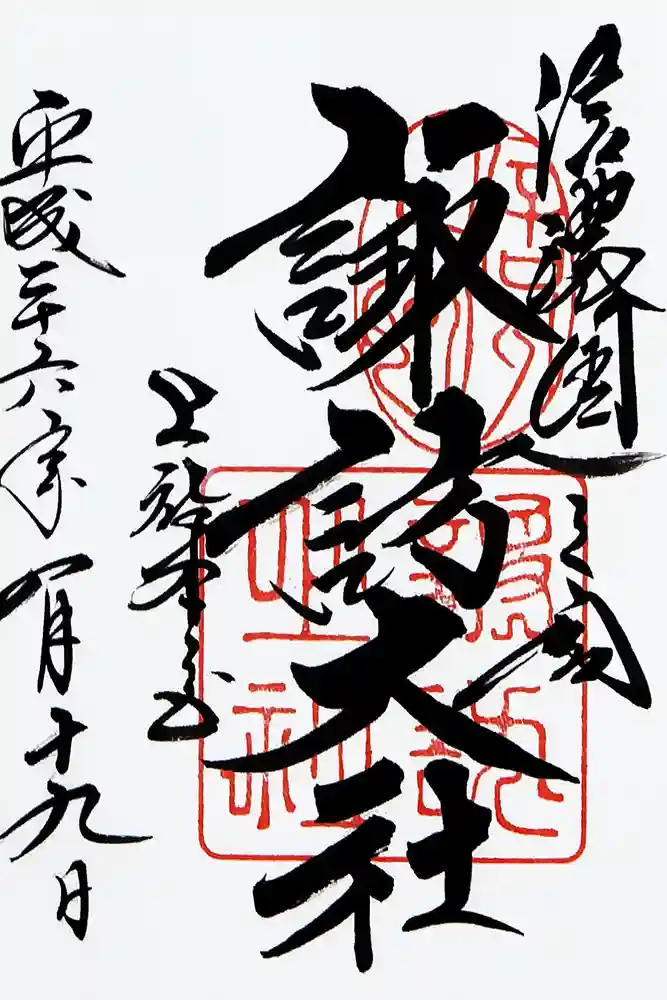 信濃國一之宮
諏訪大社
上社本宮
平成二十六年八月十九日